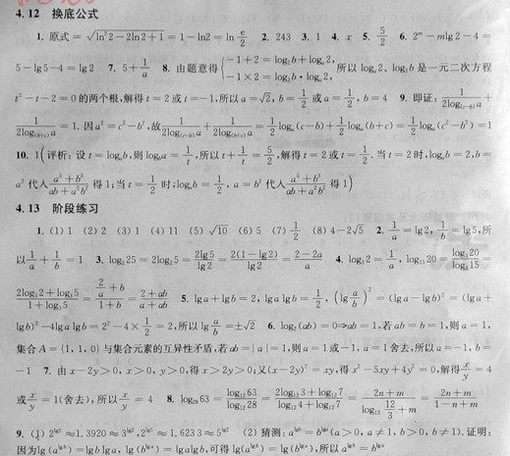 4.12 换底公式
1. 原式 = √(ln²2－2ln2＋1) = 1－ln2 = ln e/2 2. 243 3. 1 4. x 5. 5/2 6. 2ᵐ－mlg2－4 =
5－lg5－4 = lg2 7. 5＋1/a 8. 由题意得{－1＋2 = log₂b＋logₐ2, －1×2 = log₂b·logₐ2, 所以 logₐ2、log₂b 是一元二次方程
t²－t－2 = 0 的两个根,解得 t = 2 或 t =－1,所以 a = √2, b = 1/2 或 a = 1/2, b = 4 9. 即证: 1/(2log₍c₋b₎a)＋
1/(2log₍b₊c₎a) = 1. 因 a² = c²－b², 故 1/(2log₍c₋b₎a)＋1/(2log₍b₊c₎a) = 1/2 logₐ(c－b)＋1/2 logₐ(b＋c) = 1/2 logₐ(c²－b²) = 1
10. 1(评析: 设 t = logₐb, 则 log_b a = 1/t, 所以 t＋1/t = 5/2, 解得 t = 2 或 t = 1/2. 当 t = 2 时, logₐb = 2, b =
a² 代入 (a³＋b³)/(ab＋a²b²) 得 1; 当 t = 1/2 时, logₐb = 1/2, a = b² 代入 (a³＋b³)/(ab＋a²b²) 得 1)
4.13 阶段练习
1. (1) 1 (2) 2 (3) 1 (4) 11 (5) √10 (6) 5 (7) 1/2 (8) 4－2√5 2. 1/a = lg2, 1/b = lg5, 所
以 1/a＋1/b = 1 3. log₂25 = 2log₂5 = 2lg5/lg2 = 2(1－lg2)/lg2 = (2－2a)/a 4. log₃2 = 1/a, log₁₅20 = log₃20/log₃15 =
(2log₃2＋log₃5)/(1＋log₃5) = (2/a＋b)/(1＋b) = (2＋ab)/(a＋ab) 5. lga＋lgb = 2, lgalgb = 1/2, (lg a/b)² = (lga－lgb)² = (lga＋
lgb)²－4lgalgb = 2²－4×1/2 = 2, 所以 lg a/b = ±√2 6. log₂(ab) = 0⇒ab = 1, 若 ab = b = 1, 则 a = 1,
集合 A = {1, 1, 0} 与集合元素的互异性矛盾, 若 ab = |a| = 1, 则 a = 1 或－1, a = 1 舍去, 所以 a =－1, b =
－1 7. 由 x－2y＞0, x＞0, y＞0, 得 x＞2y＞0; 又(x－2y)² = xy, 得 x²－5xy＋4y² = 0, 解得 x/y = 4
或 x/y = 1(舍去), 所以 x/y = 4 8. log₂₈63 = log₁₂63/log₁₂28 = (2log₁₂3＋log₁₂7)/(log₁₂4＋log₁₂7) = (2n＋m)/(log₁₂ 12/3＋m) = (2n＋m)/(1－n＋m)
9. (1) 2^lg3 ≈ 1.3920 ≈ 3^lg2, 2^lg5 ≈ 1.6233 ≈ 5^lg2 (2) 猜测: a^lgb = b^lga (a＞0, a ≠ 1, b＞0, b ≠ 1). 证明:
因为 lg(a^lgb) = lgblga, lg(b^lga) = lgalgb, 可得 lg(a^lgb) = lg(b^lga), 所以 a^lgb = b^lga